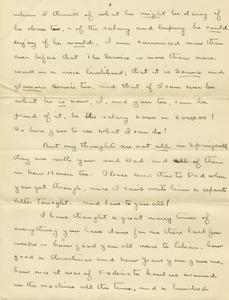 when I think of what he might be doing if
he chose too, of the salary and luxury he could
enjoy if he would, I am convinced more than
ever before that the Service is more than mere
work or a mere livelihood, that it is Service and
Glorious Service too, and that if I can ever be
what he is now, I, and you too, can be
proud of it, be the salary 2000 or 200,000!
So here goes to see what I can do!
But my thoughts are not all in Springwells
they are with you and Dad and all of them
in New Haven too. Please send this to Dad when
you get through, since I can't write him a separate
letter tonight. and love to you all!
I have thought a great many times of
everything you have done for me these last few
weeks - how good you all were to
good a Christmas and New Years you gave me,
how nice it was of Frederic to haul us around
in the machine all the time, and a hundred